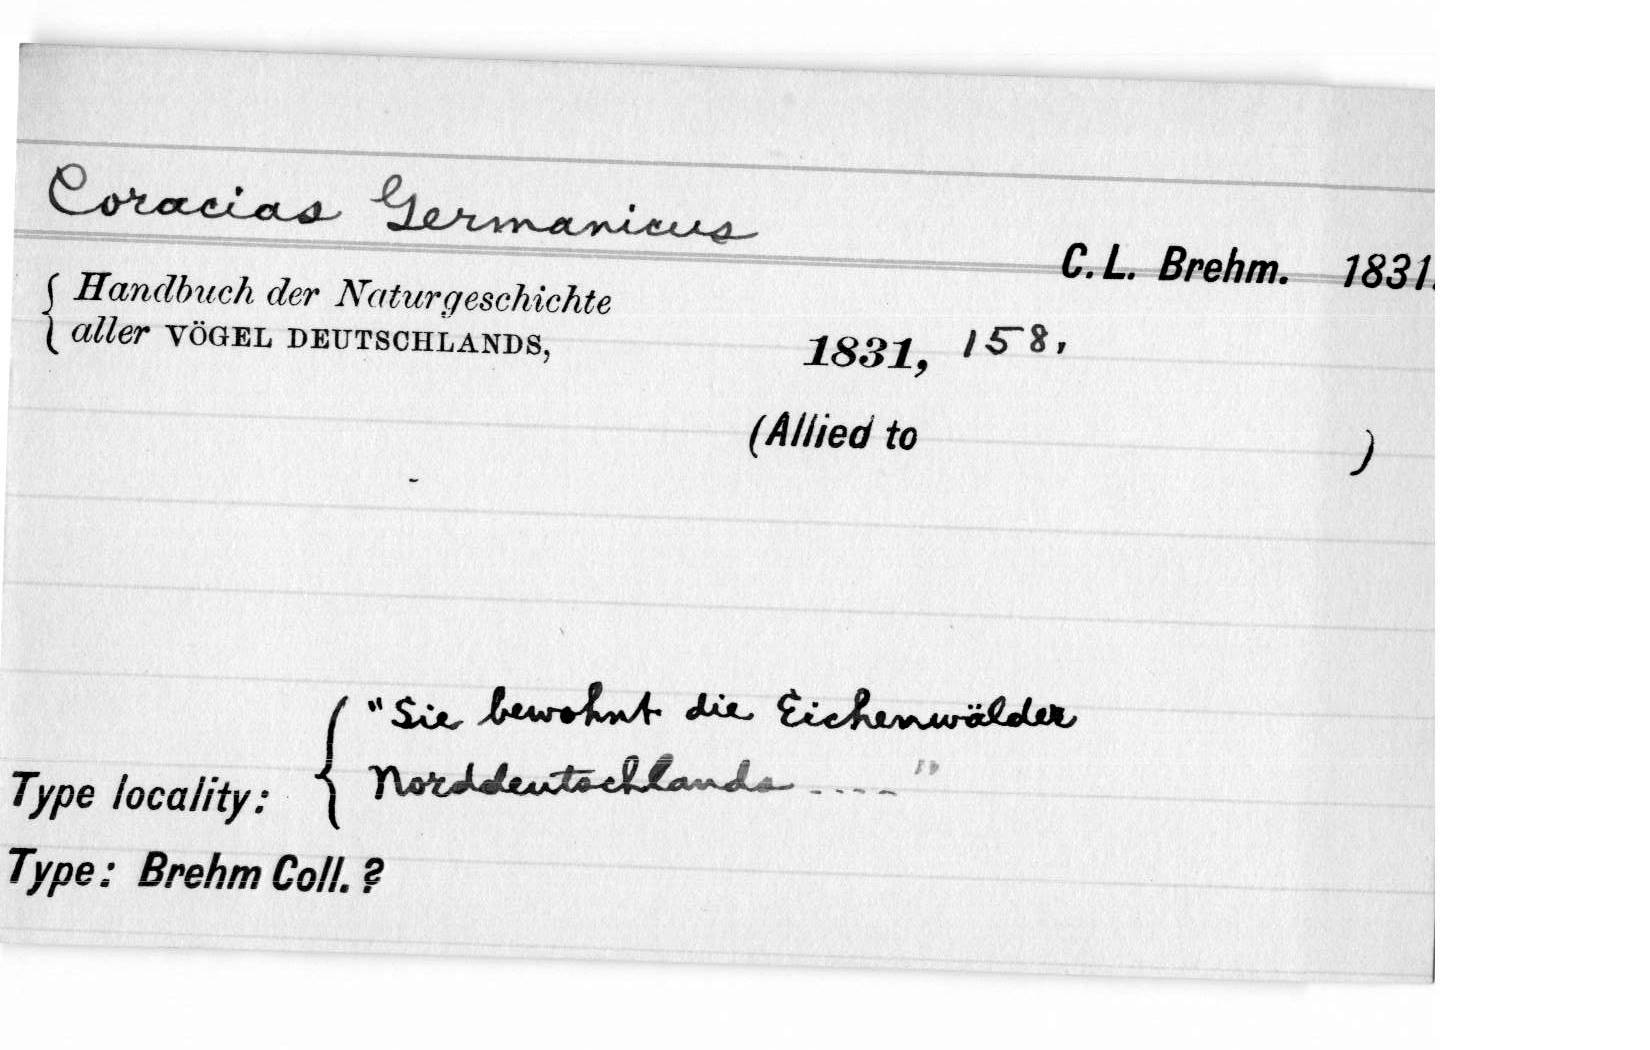 Coracias Germanicus
C. L. Brehm. 1831.
{ Handbuch der Naturgeschichte
aller VÖGEL DEUTSCHLANDS,
1831, 158,
(Allied to )
"Sie bewohnt die Eichenwälder
Norddeutschlands ...."
Type locality: {
Type: Brehm Coll. ?